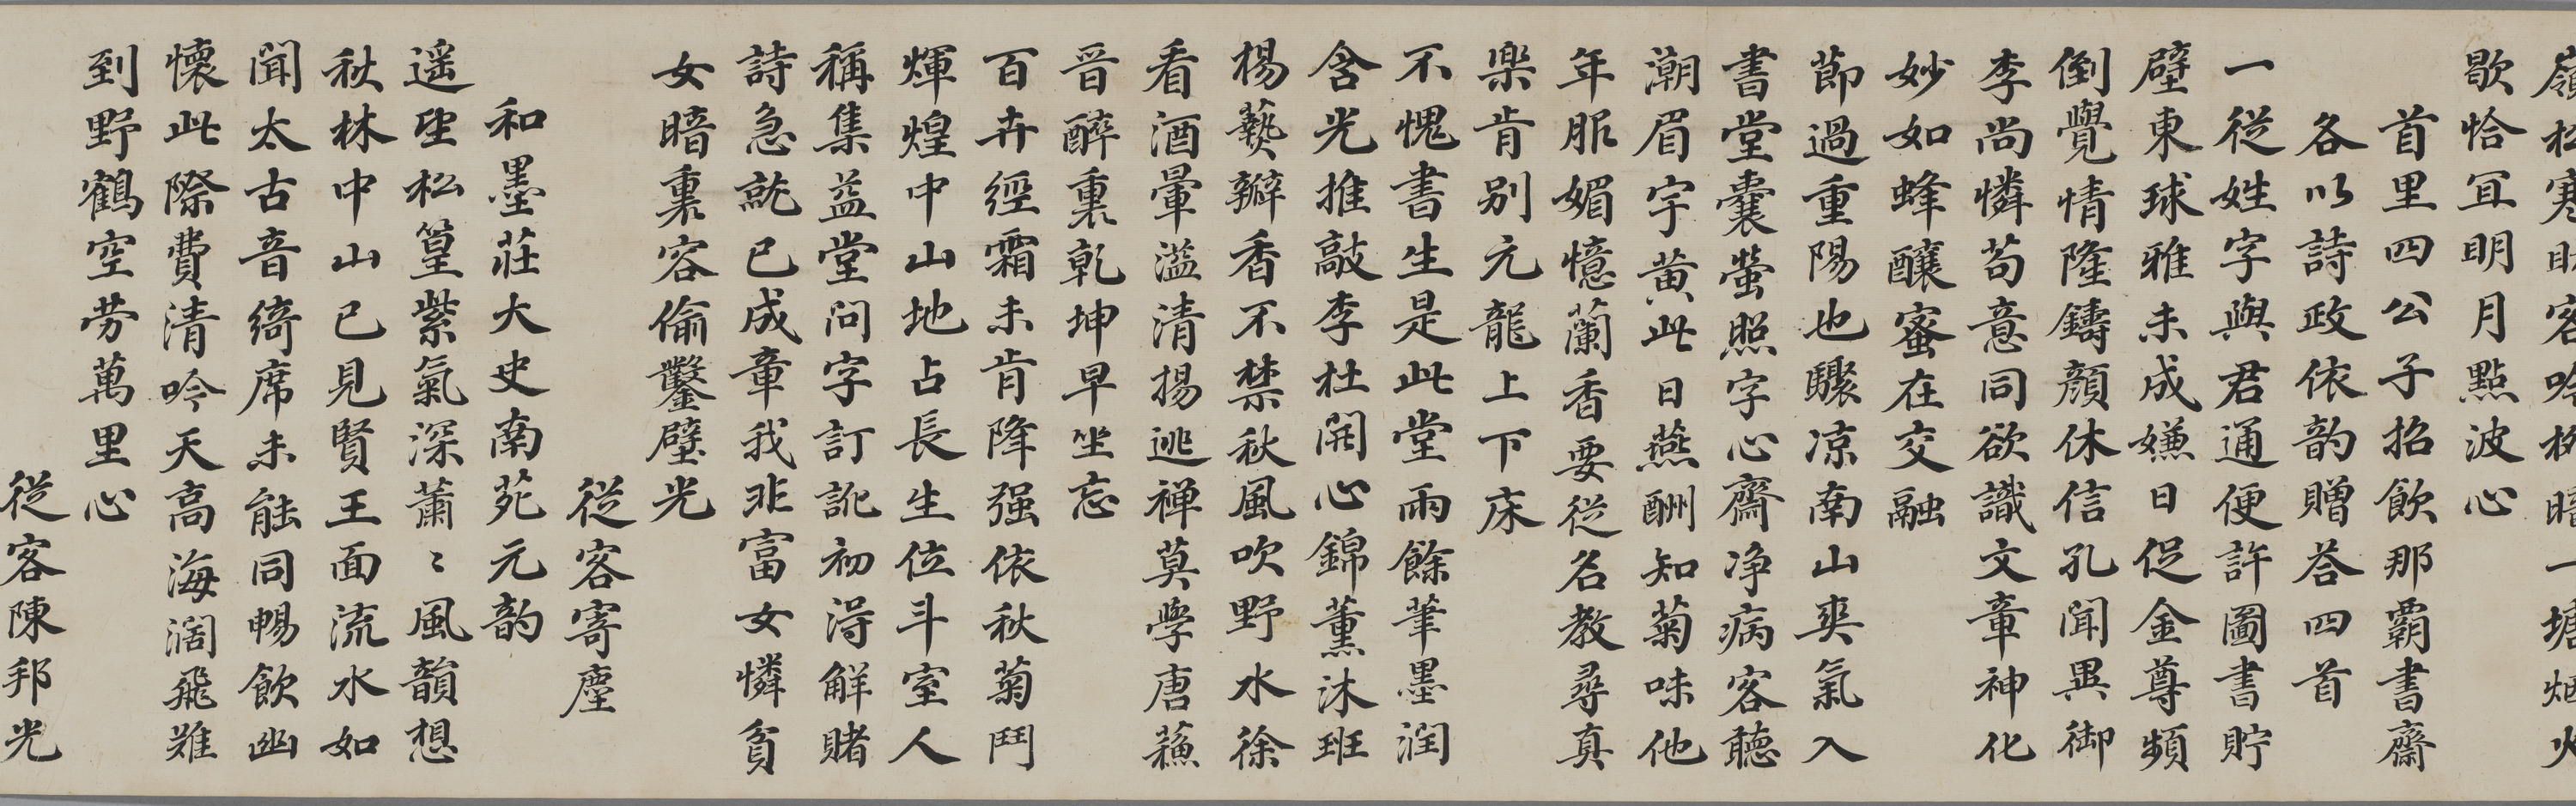 嶺松寒時客吟樹暗一塘烟火
歇恰冝明月點波心
首里四公子招飲那覇書齋
各以詩政依韵贈荅四首
一從姓字與君通便許圖書貯
壁東球雅未成嫌日促金尊頻
倒覺情隆鑄顔休信孔聞異御
李尚憐荀意同欲識文章神化
妙如蜂釀蜜在交融
節過重陽也驟凉南山爽氣入
書堂囊螢照字心齋净病客聽
潮眉宇黄此日燕酬知菊味他
年服媚憶蘭香要從名教尋真
樂肯别元龍上下床
不愧書生是此堂雨餘筆墨潤
含光推敲李杜開心錦薫沐班
楊藝瓣香不禁秋風吹野水徐
看酒暈溢清揚逃禅莫學唐蘓
晉醉裏乾坤早坐忘
百卉經霜未肯降强依秋菊鬥
輝煌中山地占長生位斗室人
稱集益堂問字訂訛初淂解賭
詩急就已成章我非富女憐貧
女暗裏容偷鑿壁光
從客寄塵
和墨莊大史南苑元韵
遥望松篁紫氣深蕭〻風韻想
秋林中山已見賢王面流水如
聞太古音綺席未能同暢飲幽
懷此際費清吟天高海濶飛難
到野鶴空劳萬里心
從客陳邦光